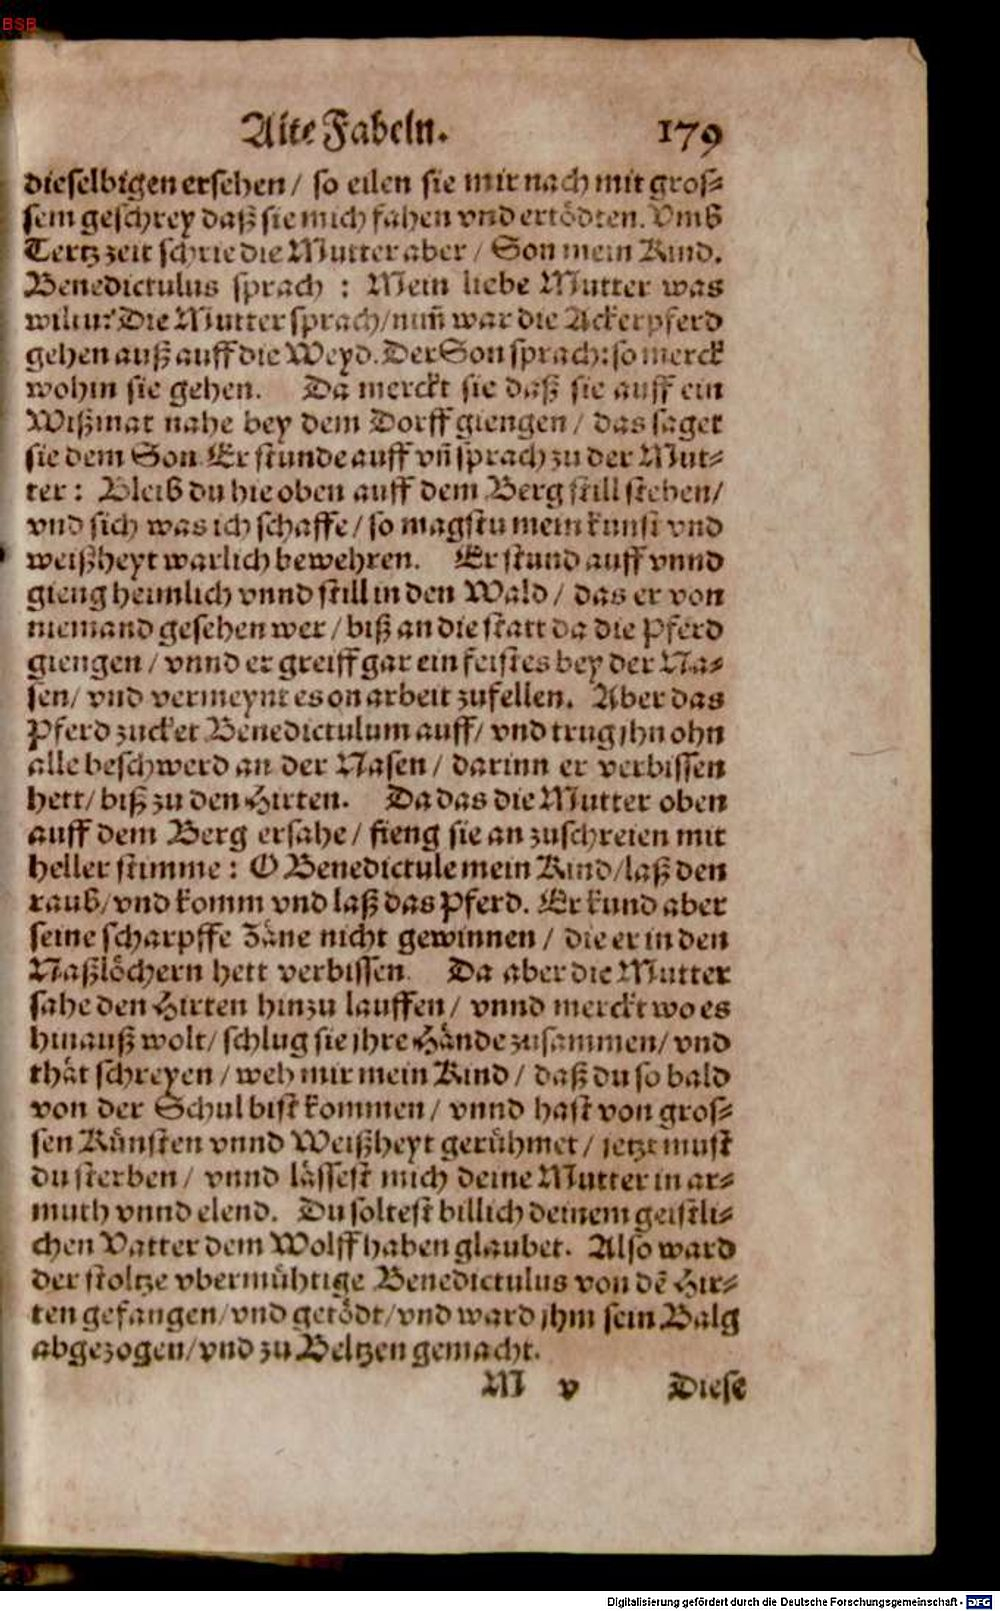 BSB
Alte Fabeln. 179
dieselbigen ersehen / so eilen sie mir nach mit gros⸗
sem geschrey daß sie mich fahen vnd ertödten. Vmb
Tertz zeit schrie die Mutter aber / Son mein Kind.
Benedictulus sprach : Mein liebe Mutter was
wiltu? Die Mutter sprach/nim̃ war die Ackerpferd
gehen auß auff die Weyd. Der Son sprach: so merck
wohin sie gehen. Da merckt sie daß sie auff ein
Wißmat nahe bey dem Dorff giengen / das saget
sie dem Son. Er stunde auff vñ sprach zu der Mut⸗
ter : Bleib du hie oben auff dem Berg still stehen/
vnd sich was ich schaffe / so magstu mein kunst vnd
weißheyt warlich bewehren. Er stund auff vnnd
gieng heimlich vnnd still in den Wald / das er von
niemand gesehen wer / biß an die statt da die Pferd
giengen / vnnd er greiff gar ein feistes bey der Na⸗
sen/ vnd vermeynt es on arbeit zufellen. Aber das
Pferd zucket Benedictulum auff/ vnd trug jhn ohn
alle beschwerd an der Nasen / darinn er verbissen
hett/ biß zu den Hirten. Da das die Mutter oben
auff dem Berg ersahe / fieng sie an zuschreien mit
heller stimme : O Benedictule mein Kind/laß den
raub/vnd komm vnd laß das Pferd. Er kund aber
seine scharpffe Zäne nicht gewinnen / die er in den
Naßlöchern hett verbissen. Da aber die Mutter
sahe den Hirten hinzu lauffen / vnnd merckt wo es
hinauß wolt/ schlug sie jhre Hände zusammen/ vnd
thät schreyen / weh mir mein Kind / daß du so bald
von der Schul bist kommen / vnnd hast von gros⸗
sen Künsten vnnd Weißheyt gerühmet / jetzt must
du sterben / vnnd lässest mich deine Mutter in ar⸗
muth vnnd elend. Du soltest billich deinem geistli⸗
chen Vatter dem Wolff haben glaubet. Also ward
der stoltze vbermühtige Benedictulus von dẽ Hir⸗
ten gefangen/vnd getödt/vnd ward jhm sein Balg
abgezogen/vnd zu Beltzen gemacht.
M v Diese
Digitalisierung gefördert durch die Deutsche Forschungsgemeinschaft - DFG